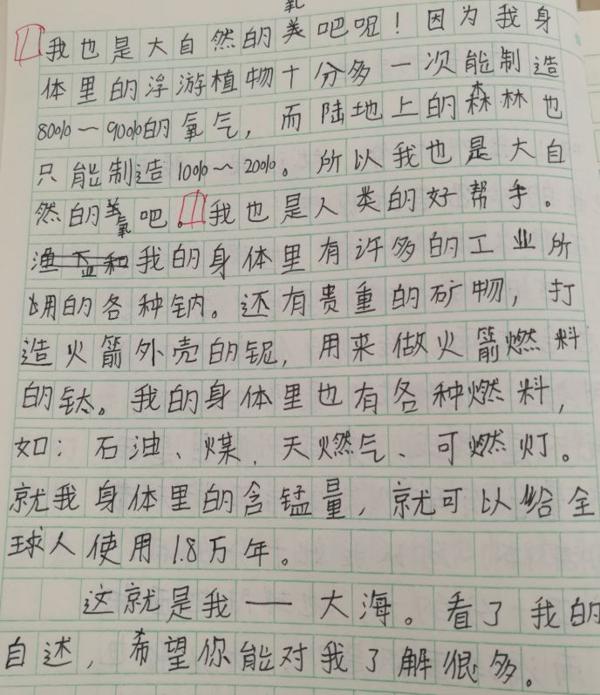 我也是大自然的美氧吧呢！因为我身
体里的浮游植物十分多一次能制造
80%～90%的氧气，而陆地上的森林也
只能制造10%～20%。所以我也是大自
然的美氧吧。我也是人类的好帮手。
我的身体里有许多的工业所
用的各种钠。还有贵重的矿物，打
造火箭外壳的铌，用来做火箭燃料
的钛。我的身体里也有各种燃料，
如：石油、煤、天燃气、可燃灯。
就我身体里的含锰量，就可以给全
球人使用1.8万年。
这就是我——大海。看了我的
自述，希望你能对我了解很多。